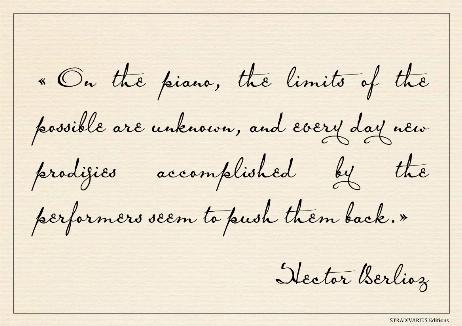 « On the piano, the limits of the
possible are unknown, and every day new
prodigies accomplished by the
performers seem to push them back.»
Hector Berlioz
STRADIVARIUS Editions